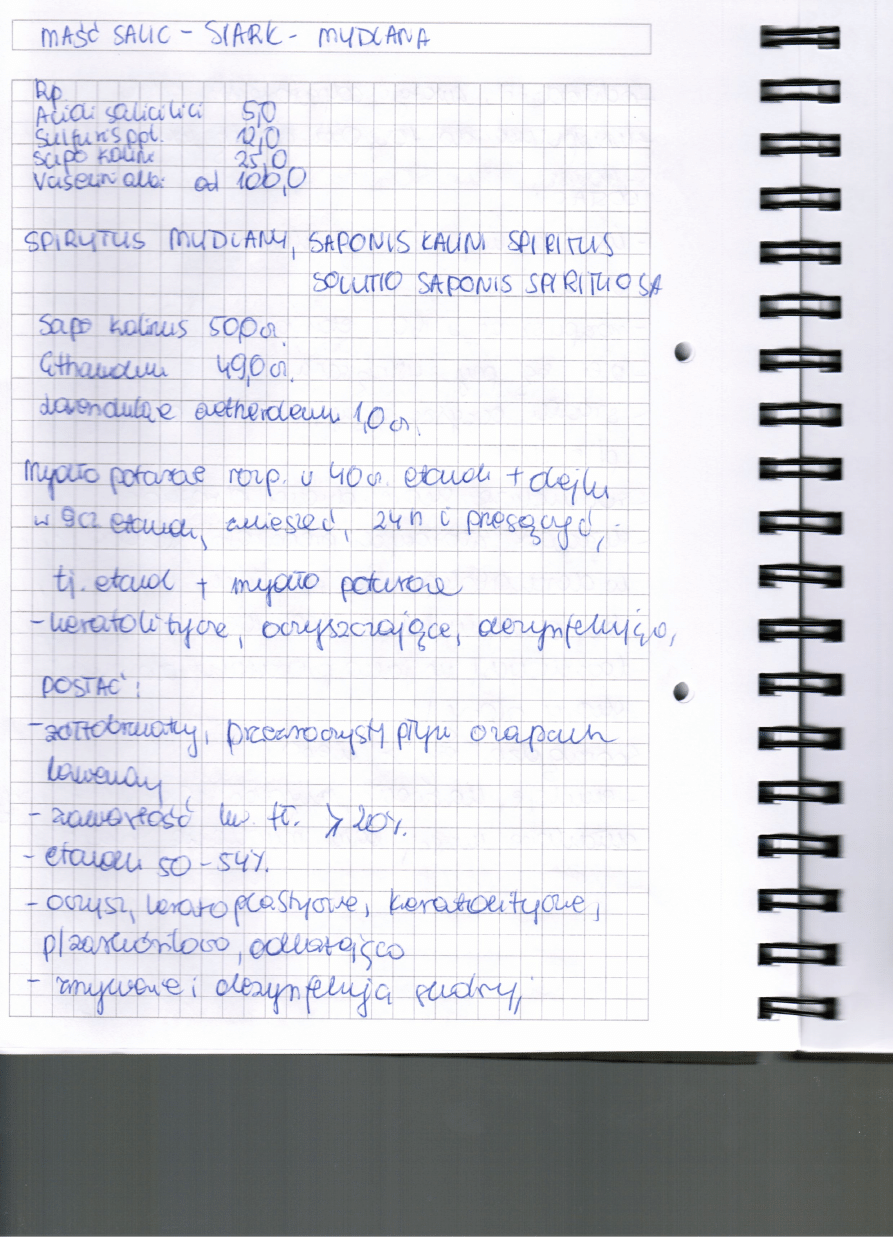 MAŚĆ SALIC - SIARK - MYDLANA
Rp
Acidi salicilici 5,0
Sulfuris ppt. 12,0
Sapo kalini 25,0
Vaselin alb. ad 100,0
SPIRYTUS MYDLANY, SAPONIS KALINI SPIRITUS
SOLUTIO SAPONIS SPIRITUOSA
Sapo kalinus 50,0 cz.
Ethanolum 49,0 cz.
Lavendulae aetheroleum 1,0 cz.
Mydło potasowe rozp. w 40 cz. etanolu + olejku
w 9 cz etanolu, zmieszać, 24 h i przesączyć,
tj. etanol + mydło potasowe
- keratolityczne, oczyszczające, dezynfekująco,
POSTAĆ:
- żółtobrunatny, przezroczysty płyn o zapachu
lawendy
- zawartość kw. tł. ≥ 20%.
- etanolu 50 - 54%.
- oczysz, keratoplastyczne, keratolityczne,
p/zaskórnikowo, odkażająco
- zmywanie i dezynfekcja skóry,